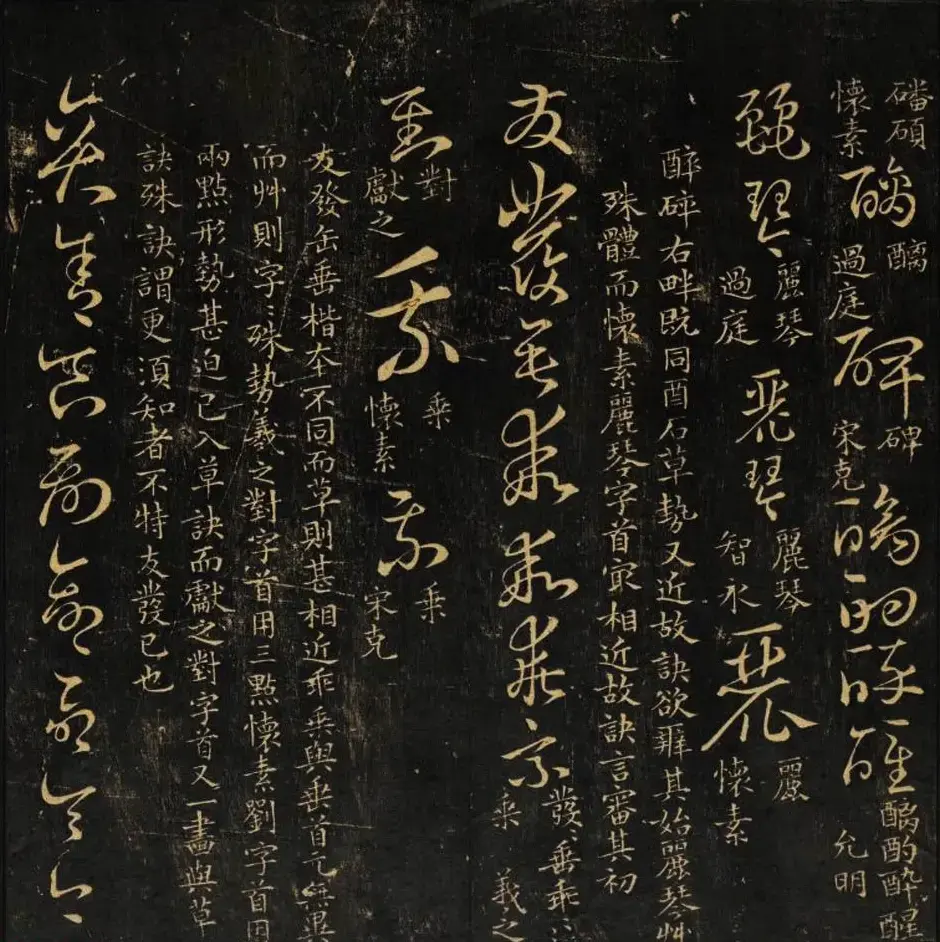 磻碩
懷素
醨
醨
過庭
碑
碑
宋克
醨酌醉醒
醨酌醉醒
允明
麗琴
麗琴
過庭
麗琴
麗琴
智永
麗
麗
懷素
醉碎右畔既同酉石草勢又近故訣欲辨其始麗琴艸
殊體而懷素麗琴字首冣相近故訣言審其初
友發
發〻垂乖〻
乘
義之
對
對
獻之
乘
乗
懷素
乘
乗
宋克
友發缶垂楷本不同而草則甚相近乖乗與垂首元無異
而艸則字〻殊勢羲之對字首用三點懷素劉字首用
兩點形勢甚迫已入草訣而獻之對字首又一畫與草
訣殊訣謂更湏知者不特友發已也